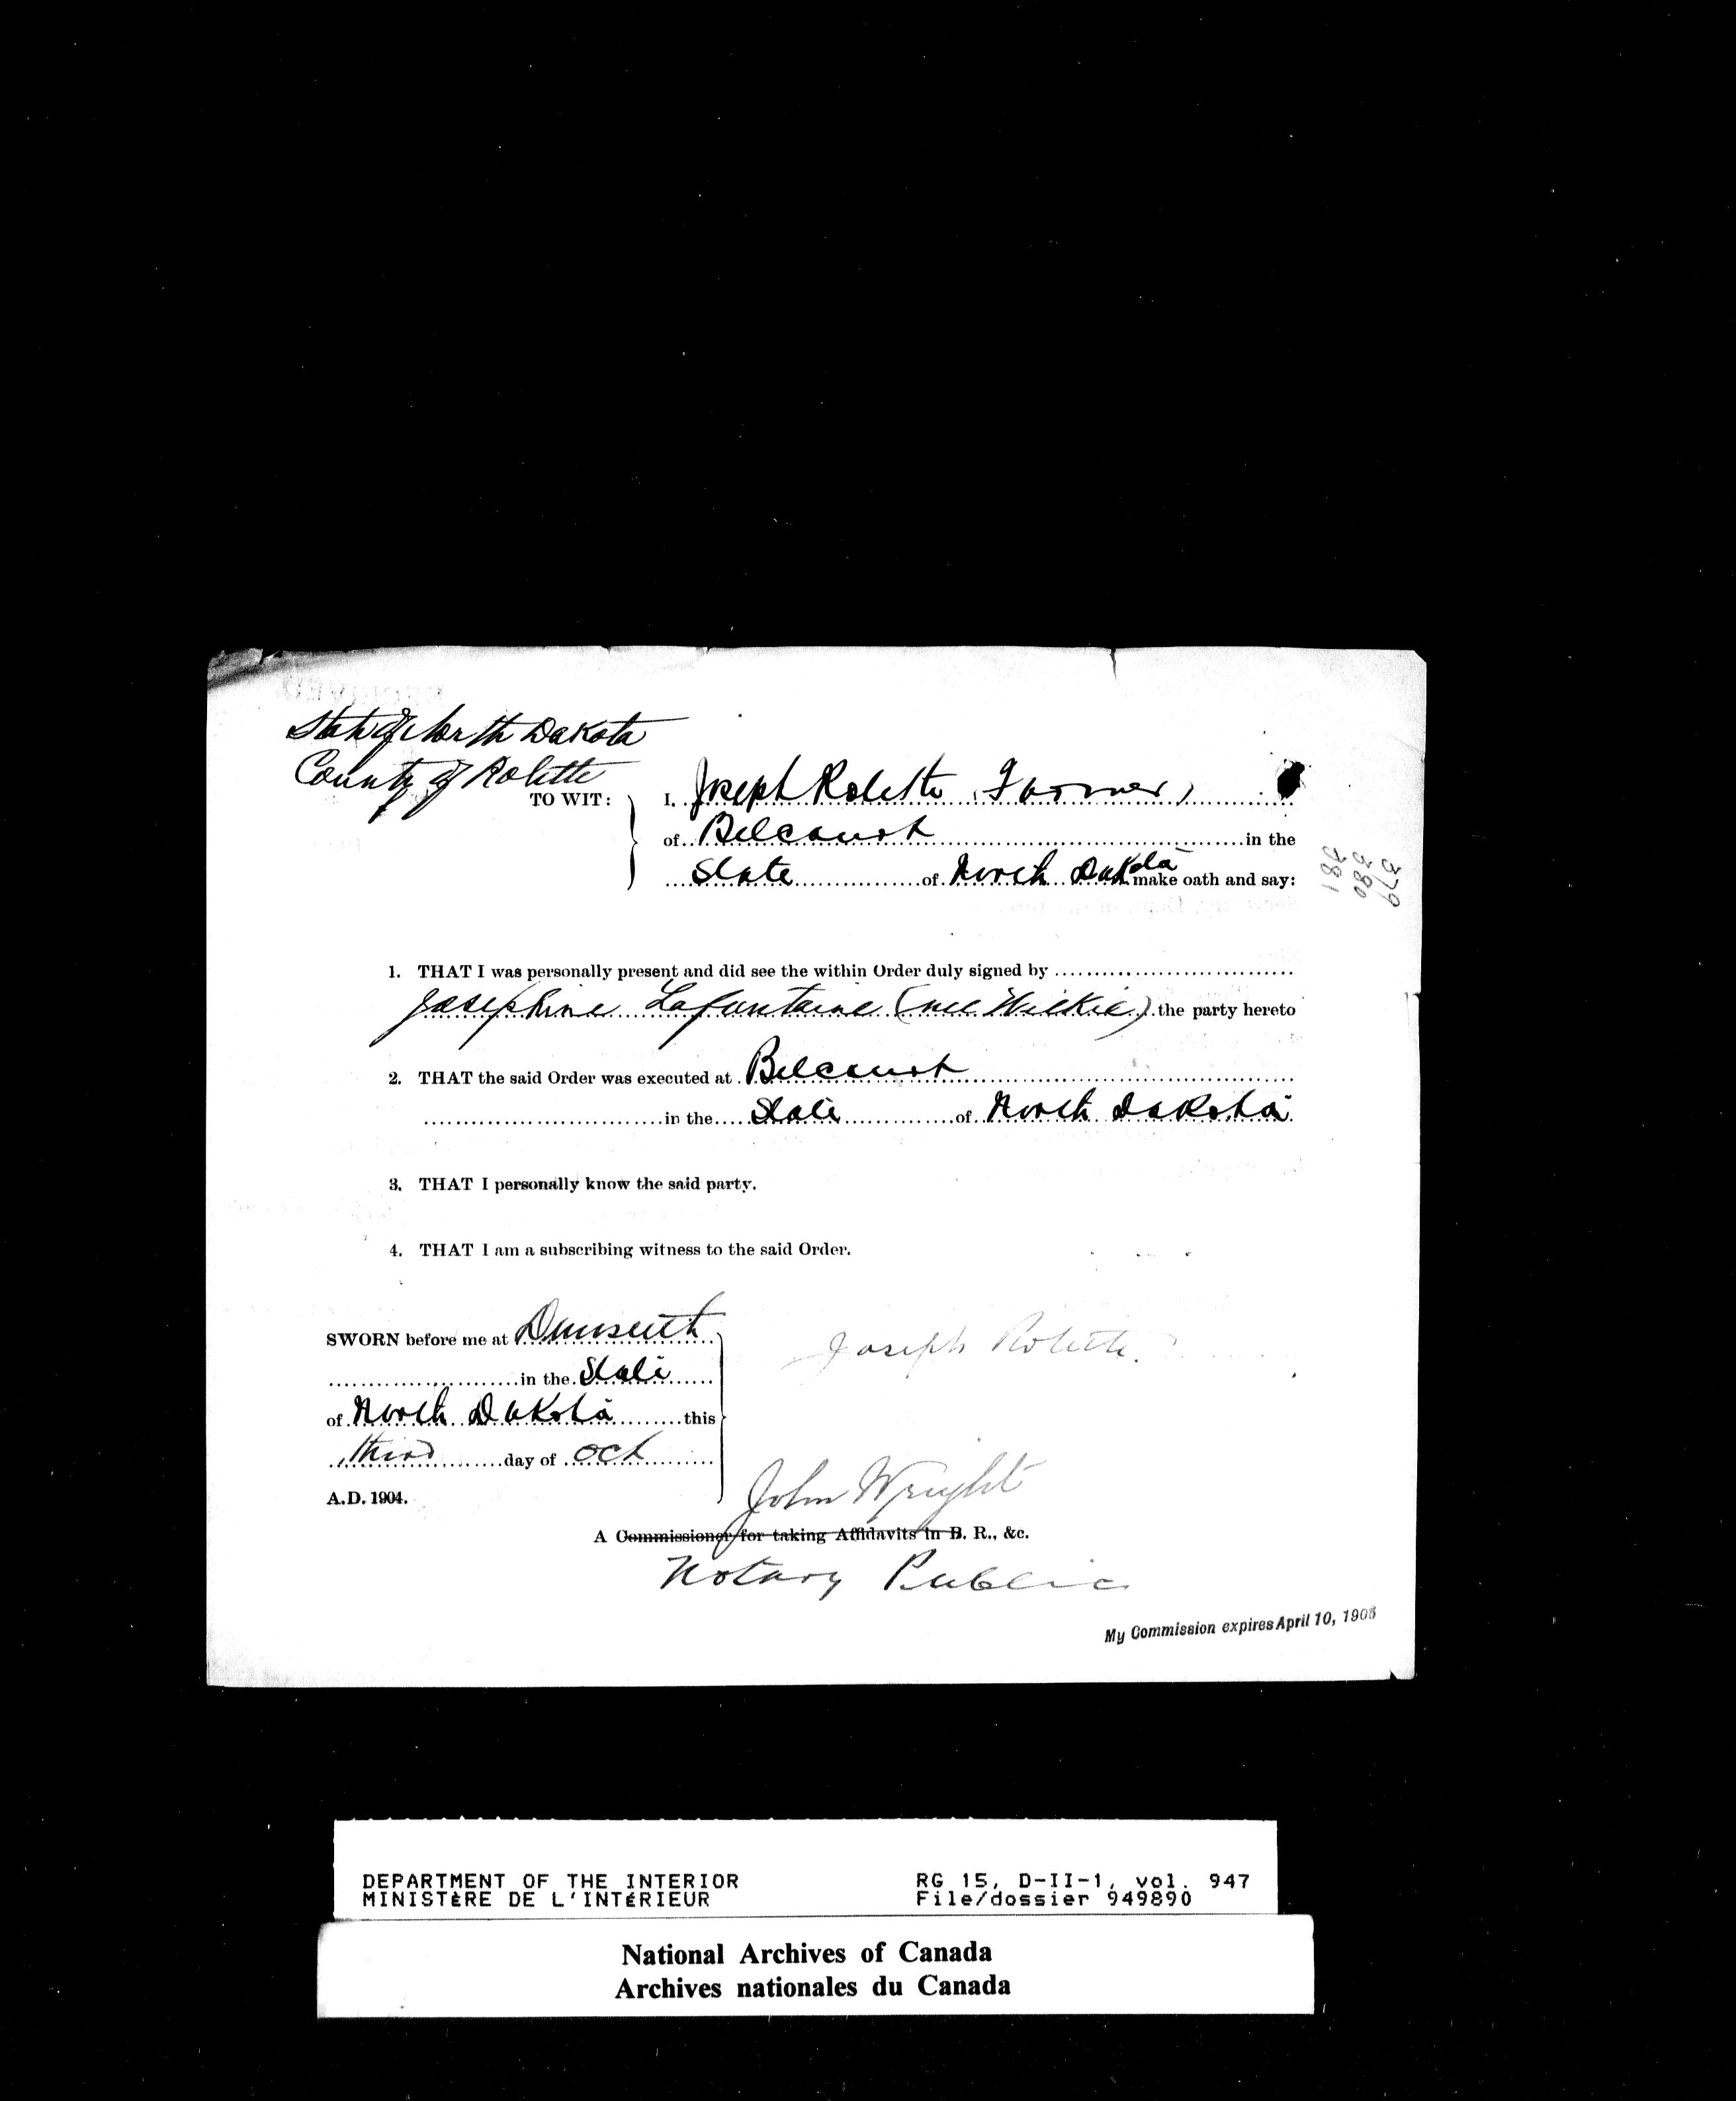 State of North Dakota
County of Rolette
TO WIT:
I. Joseph Rolette (Farmer)
of Belcourt in the
State of North Dakota make oath and say:
379
380
381
1. THAT I was personally present and did see the within Order duly signed by
Josephine Lafontaine (nee Wilkie) the party hereto
2. THAT the said Order was executed at Belcourt
in the State of North Dakota
3. THAT I personally know the said party.
4. THAT I am a subscribing witness to the said Order.
SWORN before me at Dunseith
in the State
of North Dakota this
third day of Oct
A.D. 1904.
Joseph Rolette.
John Wright
A Commissioner for taking Affidavits in B. R., &c.
Notary Public
My Commission expires April 10, 190
DEPARTMENT OF THE INTERIOR RG 15, D-II-1, vol. 947
MINISTÈRE DE L'INTÉRIEUR File/dossier 949890
National Archives of Canada
Archives nationales du Canada